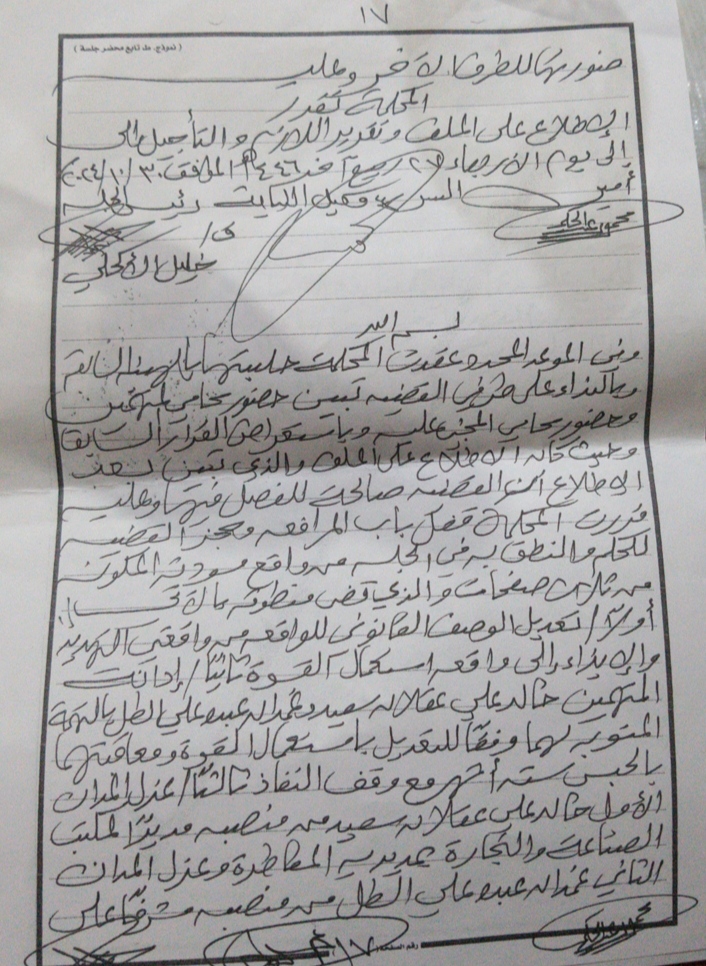 ١٧
( نموذج، ملف تابع محضر جلسة )
صنور منها للطرف الآخر وعليه
المحكمة تقرر
الإطلاع على الملف وتقرير اللازم والتأجيل إلى
إلى يوم الأربعاء ٢٧ ربيع آخر ١٤٤٦هـ الموافق ٣٠/١٠/٢٠٢٤م
أمين السر وكيل النيابة رئيس الجلسة
محمود عبدالحكيم ق/
خليل الأكحلي
بسم الله
وفي الموعد المحدد عقدت المحكمة جلستها بالهيئة السابقة
وبالنداء على طرفي القضية تبين حضور محامي المتهمين
وحضور محامي المجني عليه وباستعراض القرار السابق
وحيث كان الاطلاع على الملف والذي تبين بعد
الاطلاع أن القضية صالحة للفصل فيها وعليه
قررت المحكمة قفل باب المرافعه وحجز القضية
للحكم والنطق به في الجلسه من واقع مسودته المكونه
من ثلاث صفحات والذي قضى منطوقه بما لا تي
أولاً/ تعديل الوصف القانوني للواقعه من واقعتي التهديد
والإيذاء إلى واقعه استعمال القوة ثانياً/ إدانت
المتهمين خالد علي عقلان سعيد و عبده علي الطل بالتهمة
المنسوبه لهما وفقاً للتعديل باستعمال القوة ومعاقبتهما
بالحبس سته أشهر مع وقف النفاذ ثالثاً/ عزل المدان
الأول خالد علي عقلان سعيد من منصبه مديراً لمكتب
الصناعة والتجارة بمديريه المظفر وعزل المدان
الثاني عبده علي الطل من منصبه مشرفاً على
رقم الصفحة ( ١٧ )